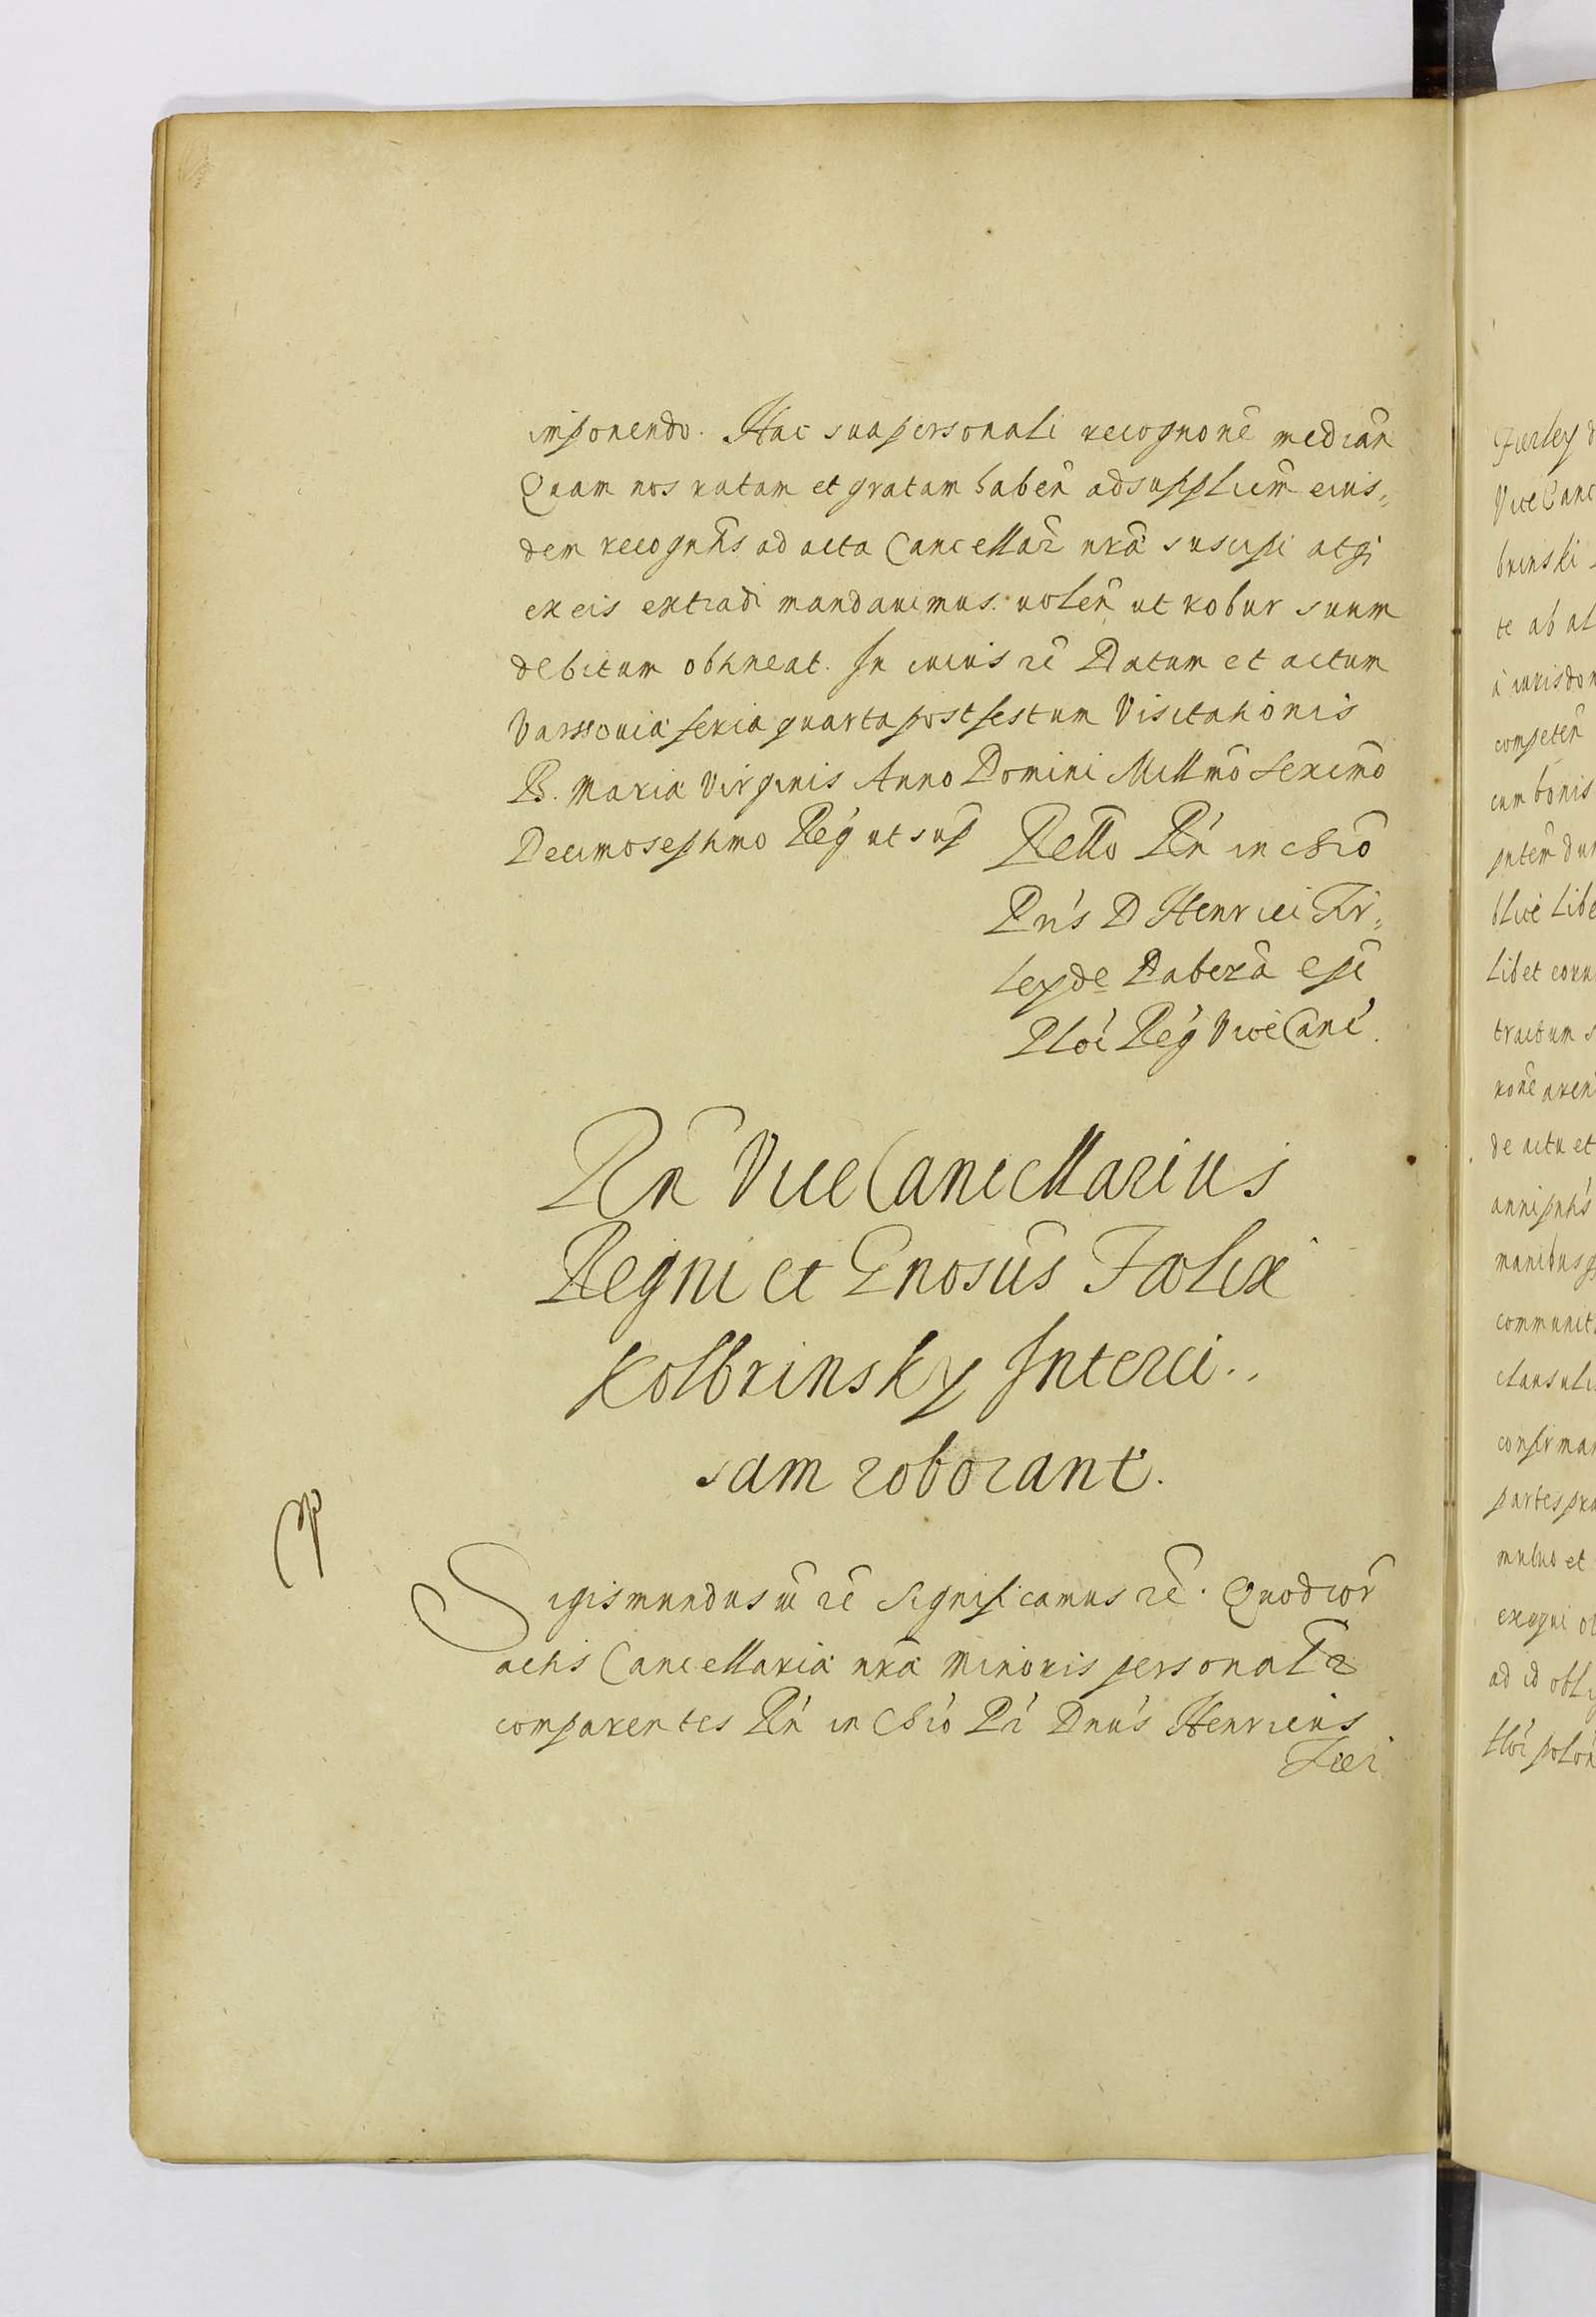 imponendo. Hac sua personali recognone median
Quam nos ratam et gratam haben ad supplicem eius,
dem recognitis ad acta Cancellar nrã suscipi atq;
ex eis extradi mandavimus. volen ut robur suum
debitum obtineat. In cuius rẽ Datum et actum
Varssovia feria quarta post festum Visitationis
B. Maria Virginis Anno Domini Millmo Sexcmo
Decimoseptimo Reg ut sup Rello Rñ in chro
Pris D Henrici Fir,
ley de Dabrã epi
Ploc Reg ViceCanc.
Rñ ViceCancellarius
Regni et Gnosus Fælix
Kolbrinsky Interci..
sam roborant.
Sigismundus iii rẽ Significamus rẽ. Quod cor
actis Cancellaria nrã Minoris personalr
comparentes Rñ in Chro Pr Dnus Henricus
Fier
Fierley d
ViceCanc
brinski
te ab al
a iurisdon
competen
cum bonis
pntem dun
blice Libe
Libet conn
tractum s
rone aren
de actu et
anni pntis
manibus q
communit
clausuli
confirman
partes pra
mutuo et
exequi ob
ad id oblig
Ploc polon